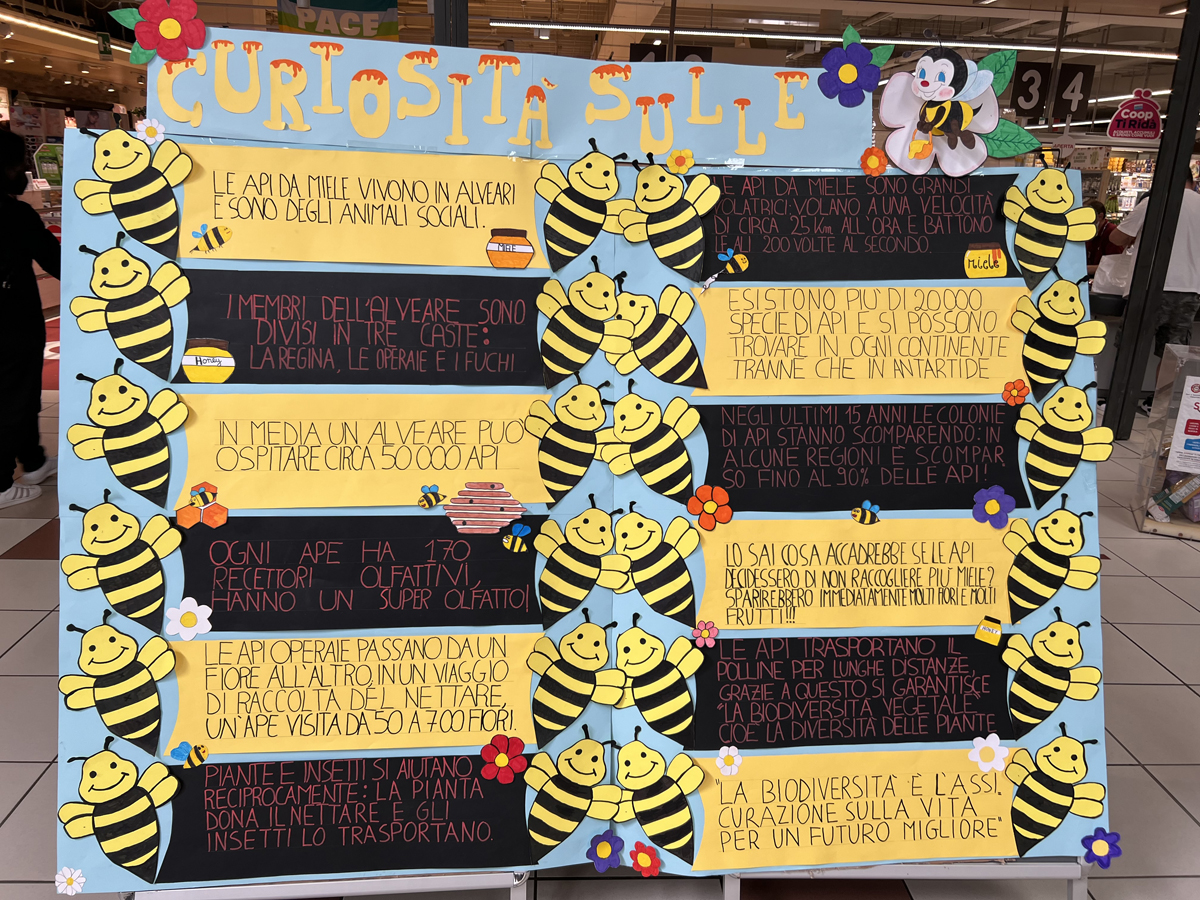 PACE
CURIOSITÀ SULLE
3 4
Coop
Ti Rida
LE API DA MIELE VIVONO IN ALVEARI
E SONO DEGLI ANIMALI SOCIALI.
MIELE
I MEMBRI DELL'ALVEARE SONO
DIVISI IN TRE CASTE:
LA REGINA, LE OPERAIE E I FUCHI
Honey
IN MEDIA UN ALVEARE PUO'
OSPITARE CIRCA 50000 API
OGNI APE HA 170
RECETTORI OLFATTIVI,
HANNO UN SUPER OLFATTO!
LE API OPERAIE PASSANO DA UN
FIORE ALL'ALTRO, IN UN VIAGGIO
DI RACCOLTA DEL NETTARE,
UN'APE VISITA DA 50 A 700 FIORI.
PIANTE E INSETTI SI AIUTANO
RECIPROCAMENTE: LA PIANTA
DONA IL NETTARE E GLI
INSETTI LO TRASPORTANO.
LE API DA MIELE SONO GRANDI
VOLATRICI: VOLANO A UNA VELOCITÀ
DI CIRCA 25 Km ALL'ORA E BATTONO
LE ALI 200 VOLTE AL SECONDO.
Miele
ESISTONO PIU' DI 20000
SPECIE DI API E SI POSSONO
TROVARE IN OGNI CONTINENTE
TRANNE CHE IN ANTARTIDE
NEGLI ULTIMI 15 ANNI LE COLONIE
DI API STANNO SCOMPARENDO: IN
ALCUNE REGIONI È SCOMPAR
SO FINO AL 90% DELLE API!
LO SAI COSA ACCADREBBE SE LE API
DECIDESSERO DI NON RACCOGLIERE PIU' MIELE?
SPARIREBBERO IMMEDIATAMENTE MOLTI FIORI E MOLTI
FRUTTI!!!
HONEY
LE API TRASPORTANO IL
POLLINE PER LUNGHE DISTANZE,
GRAZIE A QUESTO SI GARANTISCE
"LA BIODIVERSITÀ VEGETALE"
CIOÈ LA DIVERSITÀ DELLE PIANTE
"LA BIODIVERSITA' È L'ASSI
CURAZIONE SULLA VITA
PER UN FUTURO MIGLIORE"